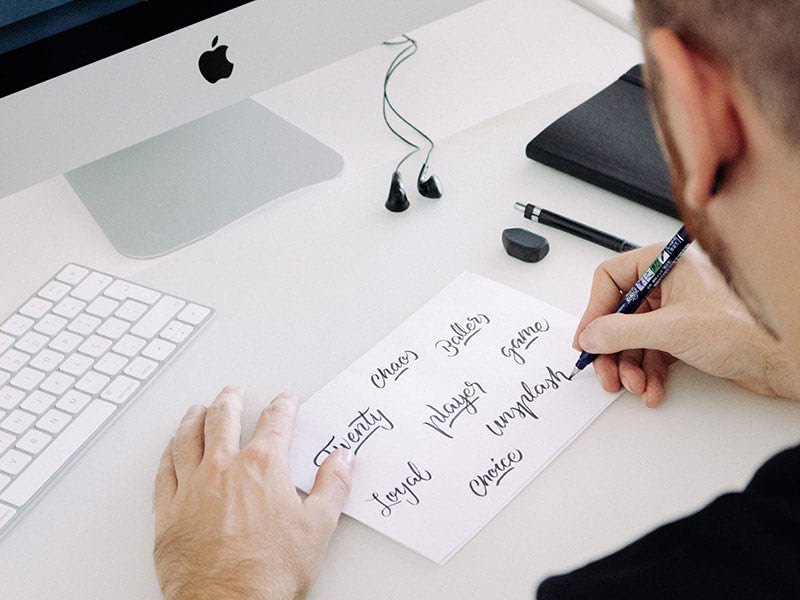 chaos
Ballers
game
Twenty
player
unsplash
Loyal
choice